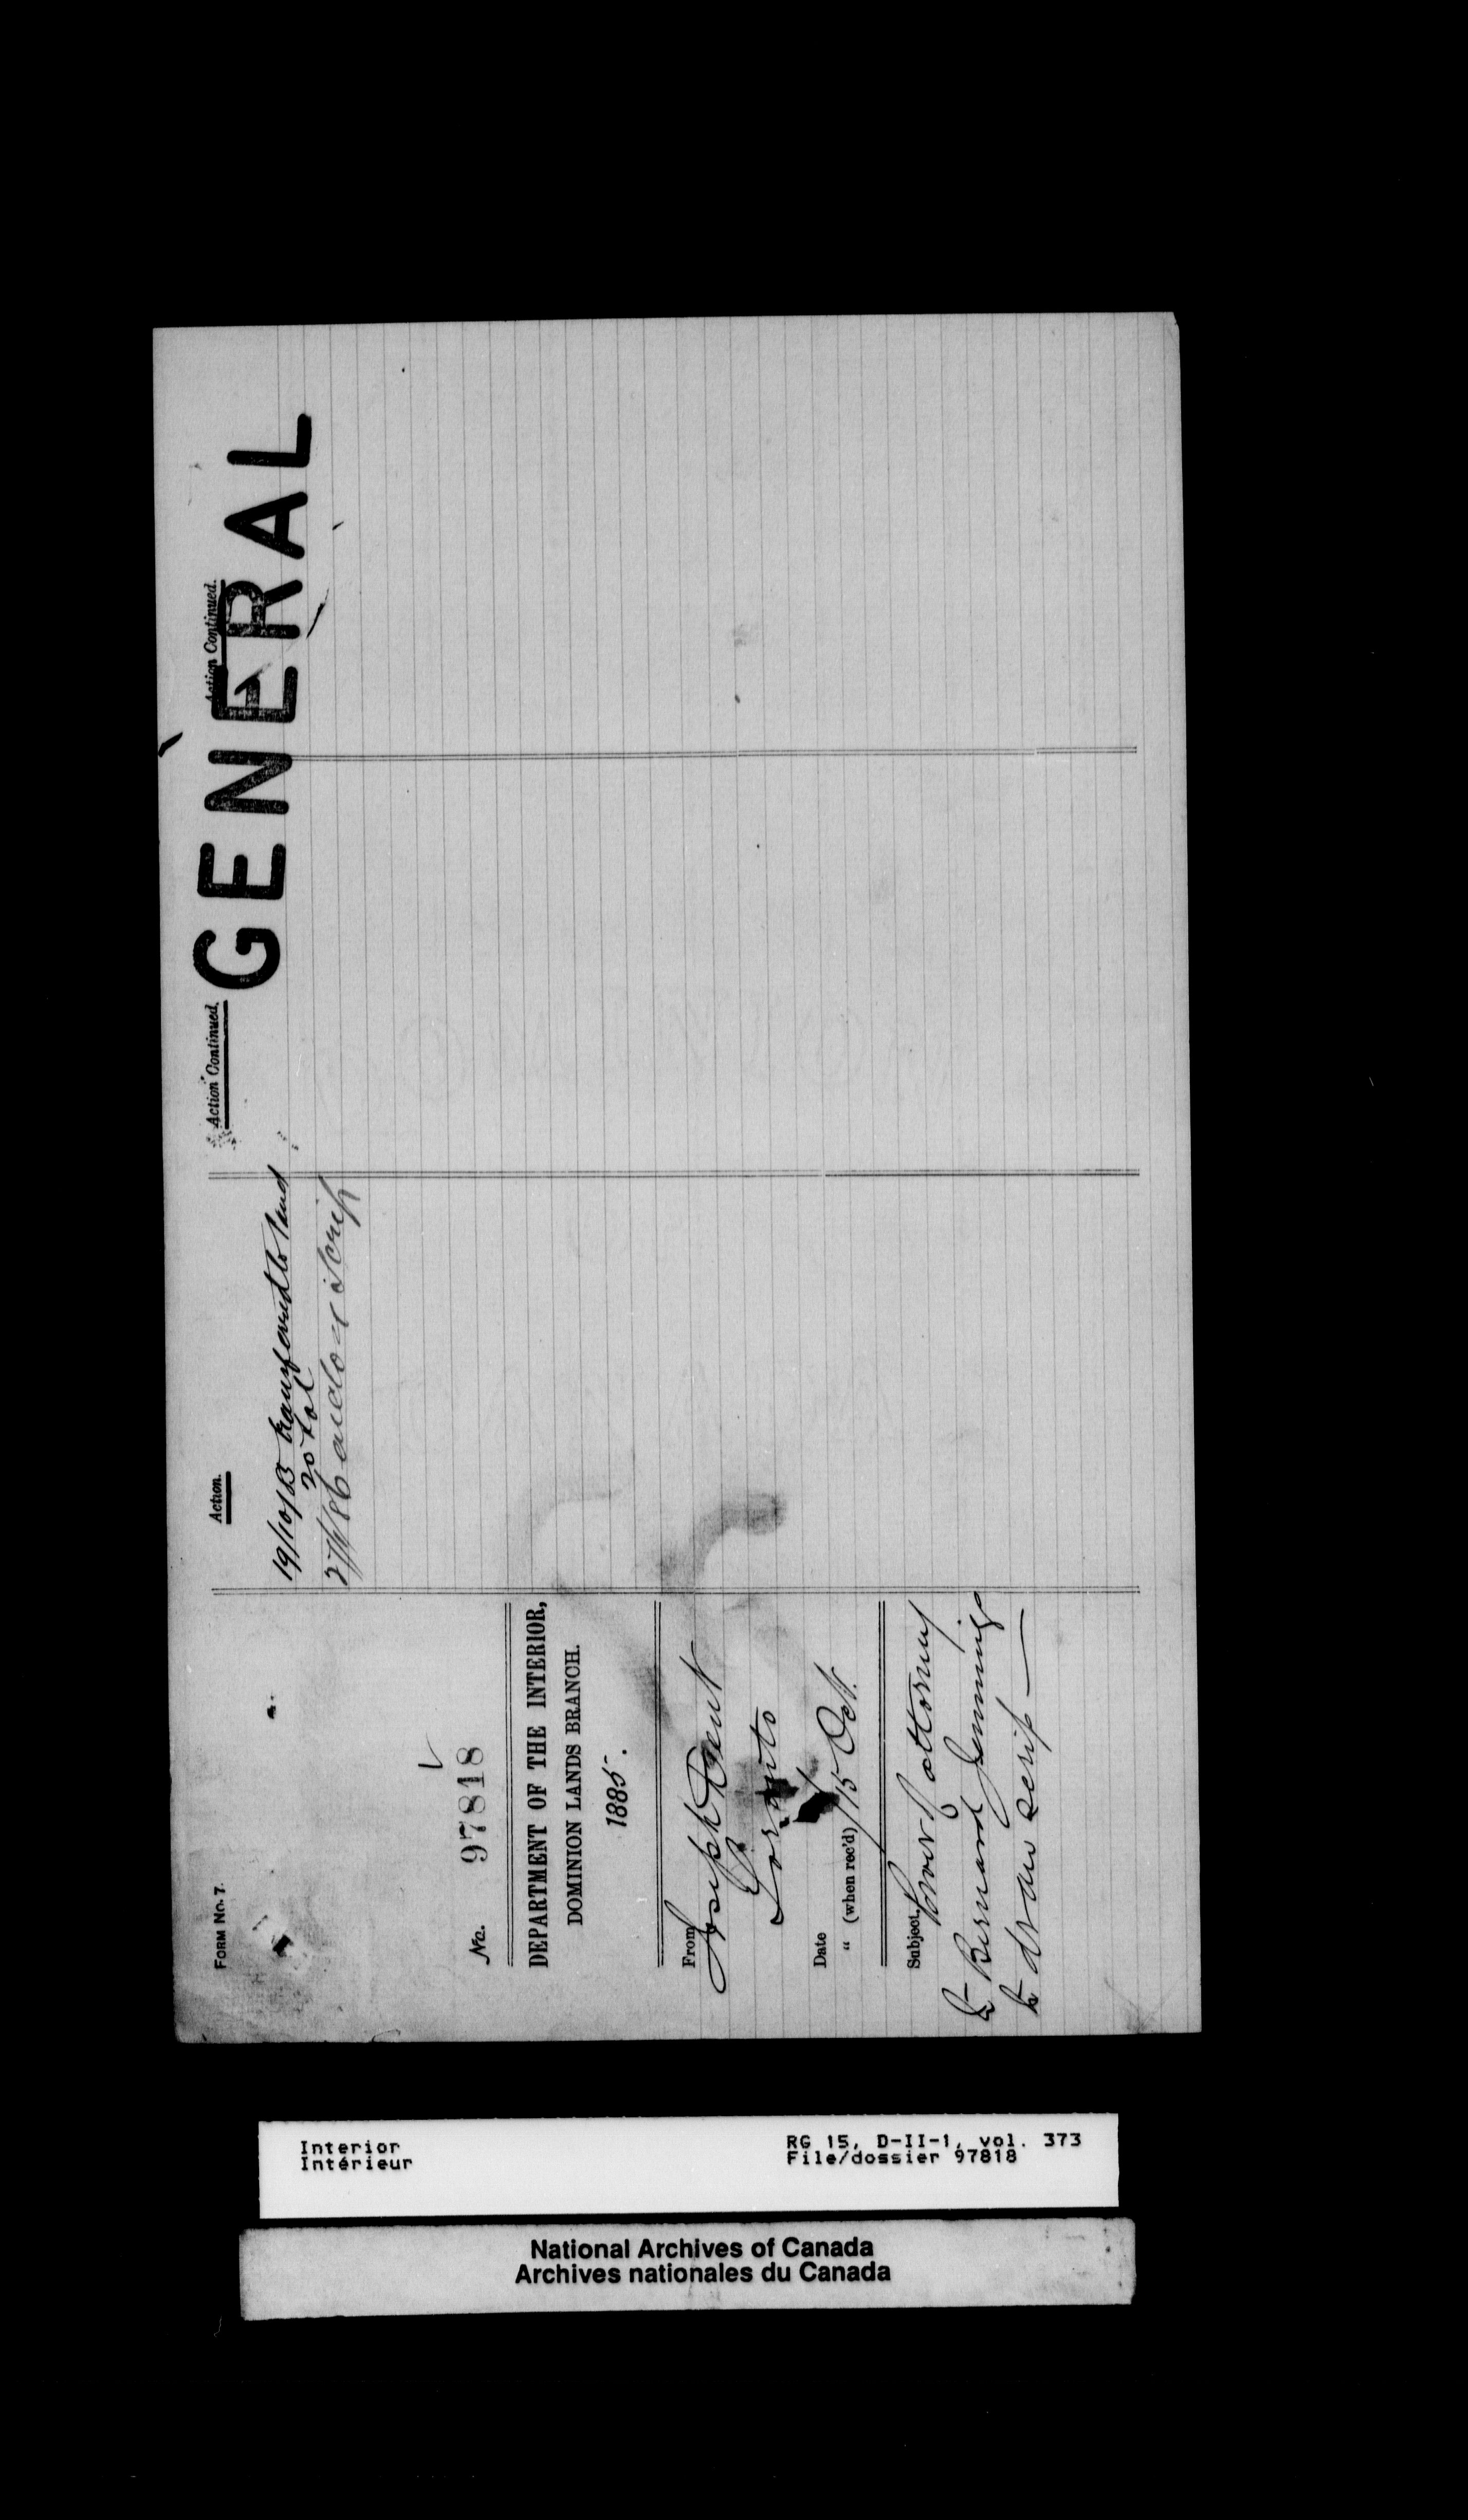 FORM No. 7.
No. 97818
DEPARTMENT OF THE INTERIOR,
DOMINION LANDS BRANCH.
1885.
From Joseph Dent
Toronto
Date
" (when rec'd) 15 Oct.
Subject. Power of attorney
to Bernard Jennings
to draw scrip —
Action.
19/10/85 transferred to land
27/1/86 and scrip
Action Continued.
Action Continued.
GENERAL
Interior
Intérieur
RG 15, D-II-1, vol. 373
File/dossier 97818
National Archives of Canada
Archives nationales du Canada